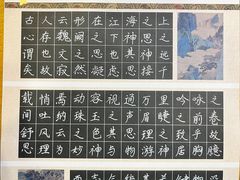 古人云形在江海之上
心存魏阙之下神思之
谓也文之思也其神远
矣故寂然凝虑思接千
载悄焉动容视通万里吟咏之
间吐纳珠玉之声眉睫之前卷
舒风云之色其思理之致乎故
思理为妙神与物游神居胸臆